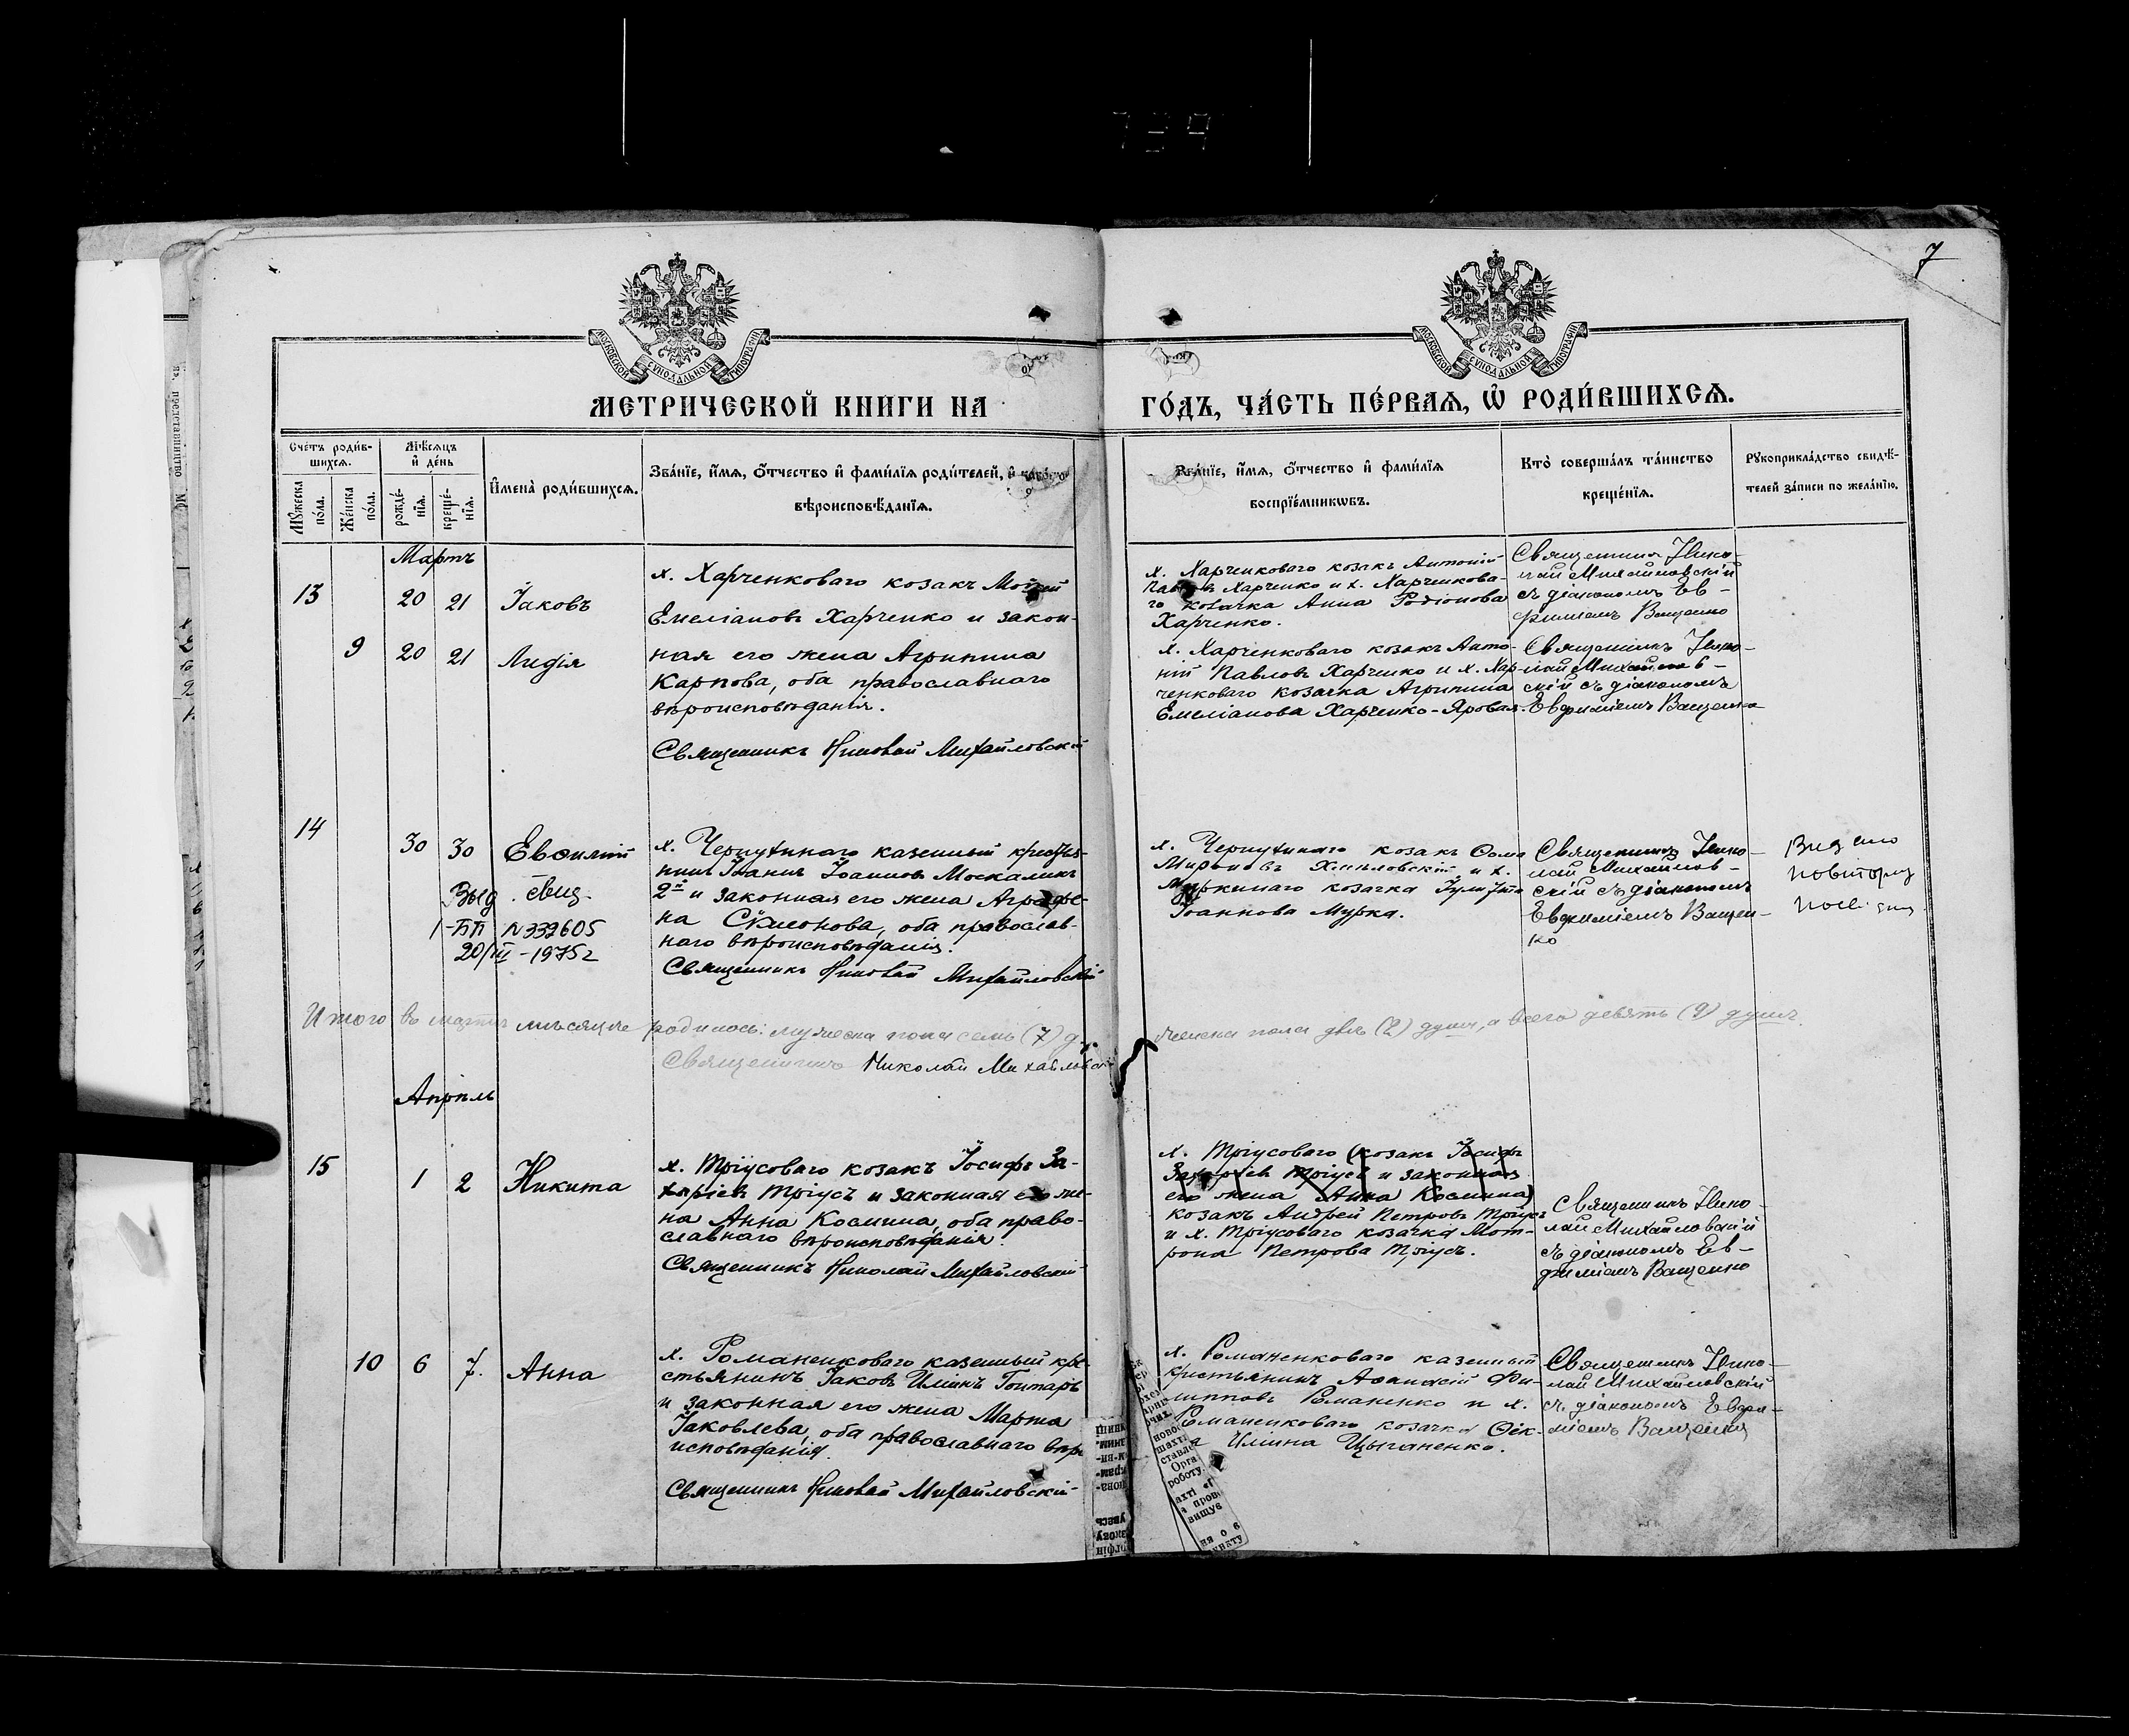 7
МОСКОВСКОЙ СѴНОДАЛЬНОЙ ТИПОГРАФІИ
МОСКОВСКОЙ СѴНОДАЛЬНОЙ ТИПОГРАФІИ
МЕТРИЧЕСКОЙ КНИГИ НА
ГО́ДЪ, ЧА́СТЬ ПЕ́РВАѦ, Ѡ҆ РОДИ́ВШИХСѦ.
Сче́тъ роди́в-
шихсѧ.
Мꙋ́жеска
по́ла.
Же́нска
по́ла.
Мѣ́сѧцъ
и҆ де́нь
рожде́-
нїѧ.
креще́-
нїѧ.
И҆мена̀ роди́вшихсѧ.
Зва́нїе, и҆́мѧ, ѻ҆́тчество и҆ фами́лїѧ роди́телей, и҆
вѣроисповѣ́данїѧ.
Зва́нїе, и҆́мѧ, ѻ҆́тчество и҆ фами́лїѧ
воспрїе́мникѡвъ.
Кто̀ соверша́лъ та́инство
креще́нїѧ.
Рꙋкоприкла́дство свидѣ́-
телей за́писи по жела́нїю.
Мартъ
13
20 21
Іаковъ
х. Харченковаго козакъ
Емеліановъ Харченко и закон-
9
20 21
Лидія
ная его жена Агрипина
Карпова, оба православнаго
вѣроисповѣданія.
Священникъ Николай Михайловскій
х. Харченковаго козакъ Антоній
Павловъ Харченко и х. Харченкова-
го козачка Анна Родіонова
Харченко.
Священникъ Нико-
лай Михайловскій
съ діакономъ Ев-
фиміемъ Ващенко
х. Харченковаго козакъ Анто-
ній Павловъ Харченко и х. Хар-
ченковаго козачка Агрипина
Емеліанова Харченко-Яровая.
Священникъ Нико-
лай Михайлов-
скій съ діакономъ
Евфиміемъ Ващенко
14
30 30
Евѳимій
Выд. свид.
N 339605
20/III - 1975 г
казенный крестья-
нинъ Іоаннъ Іоанновъ Москаликъ
2й и законная его жена Аграфе-
на Симонова, оба православ-
наго вѣроисповѣданія.
Священникъ Николай Михайловскій
козакъ Ѳома
Мироновъ и х.
Муркинаго козачка
Іоаннова Мурка.
Священникъ Нико-
лай Михайлов-
скій съ діакономъ
Евфиміемъ Ващен-
ко
Видано
повіторну
Итого въ мартѣ мѣсяцѣ родилось: мужеска пола семь (7) д.,
женска пола двѣ (2) души, а всего девять (9) душъ.
Священникъ Николай Михайловскій
Апрѣль
15
1 2
Никита
х. Тріусоваго козакъ Іосифъ За-
харіевъ Тріусъ и законная его же-
на Анна Космина, оба право-
славнаго вѣроисповѣданія.
Священникъ Николай Михайловскій
х. Тріусоваго (козакъ Іосифъ
Захаріевъ Тріусъ и законная
его жена Анна Космина)
козакъ Андрей Петровъ Тріусъ
и х. Тріусоваго козачка Мот-
рона Петрова Тріусъ.
Священникъ Нико-
лай Михайловскій
съ діакономъ Ев-
фиміемъ Ващенко
10
6 7.
Анна
х. Романенковаго казенный кре-
стьянинъ Іаковъ Иліинъ Гонтарь
и законная его жена Марта
Іаковлева, оба православнаго вѣро-
исповѣданія.
Священникъ Николай Михайловскій
х. Романенковаго казенный
крестьянинъ Аѳанасій Фи-
липповъ Романенко и х.
Романенковаго козачка Ѳек-
ла Иліина Цыганенко.
Священникъ Нико-
лай Михайловскій
съ діакономъ Евфи-
міемъ Ващенко